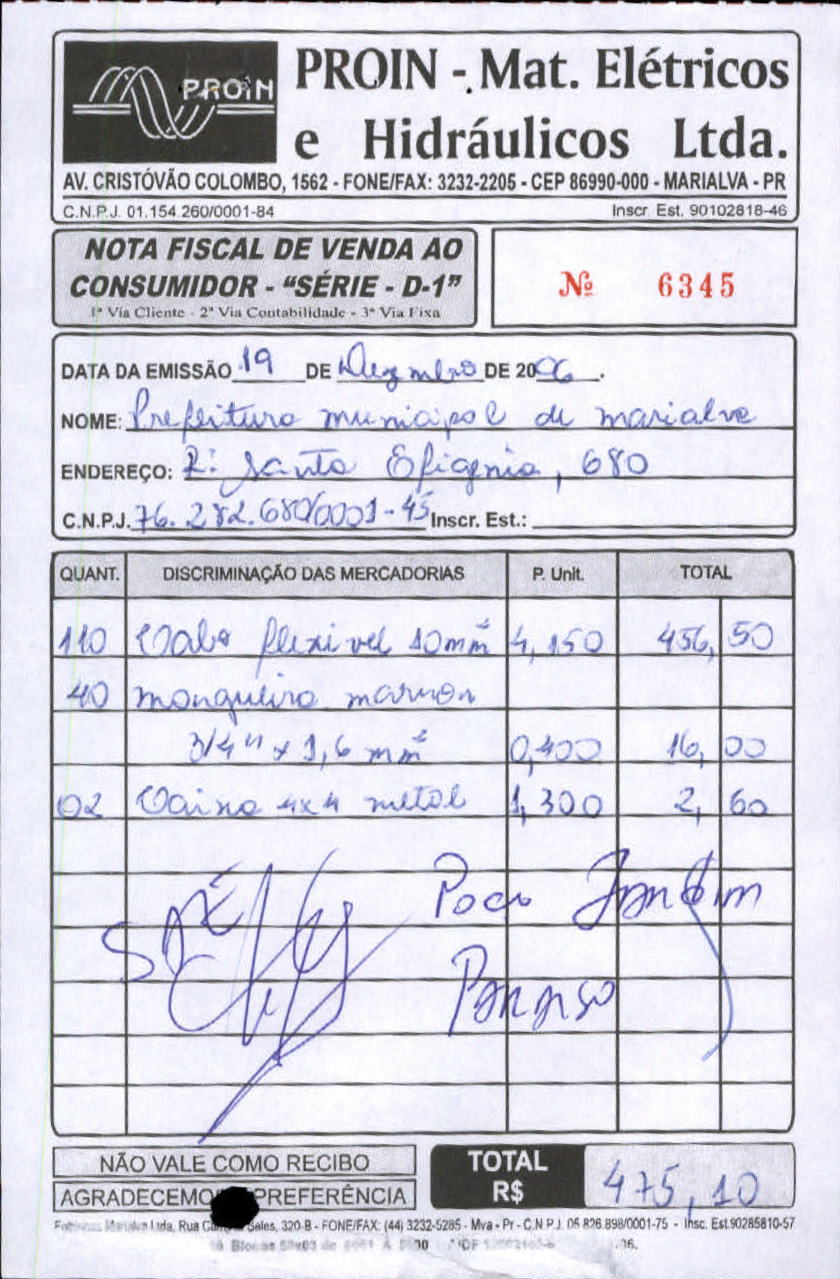 PROIN
PROIN - Mat. Elétricos
e Hidráulicos Ltda.
AV. CRISTÓVÃO COLOMBO, 1562 - FONE/FAX: 3232-2205 - CEP 86990-000 - MARIALVA - PR
C.N.P.J. 01.154.260/0001-84 Inscr. Est. 90102818-46
NOTA FISCAL DE VENDA AO
CONSUMIDOR - "SÉRIE - D-1"
1ª Via Cliente - 2ª Via Contabilidade - 3ª Via Fixa
Nº 6345
DATA DA EMISSÃO 19 DE Dezembro DE 2006.
NOME: Prefeitura municipal de marialva
ENDEREÇO: R: Santa Efigenia, 680
C.N.P.J. 76.282.680/0001-45 Inscr. Est.:
QUANT. DISCRIMINAÇÃO DAS MERCADORIAS P. Unit. TOTAL
110 Cabo flexivel 10mm² 4,150 456,50
40 mangueira marron
3/4" x 1,6 mm² 0,400 16,00
02 Caixa 4x4 metal 1,300 2,60
Poço Jardim
Paraiso
NÃO VALE COMO RECIBO
AGRADECEMOS PREFERÊNCIA
TOTAL
R$ 475,10
Marialva Ltda, Rua Sales, 320-B - FONE/FAX: (44) 3232-5285 - Mva - Pr - C.N.P.J. 05 826.898/0001-75 - Insc. Est.90285810-57